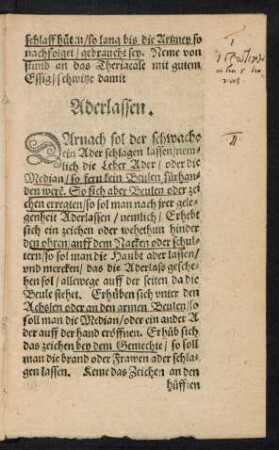 schlaff hüten/so lang bis die Artzney so
nachfolget/gebraucht sey. Neme von
stund an das Theriacale mit gutem
Essig/schwitze damit
Aderlassen.
DArnach sol der schwache
ein Ader schlagen lassen/nem-
lich die Leber Ader/oder die
Median/so fern kein Beulen fürhan-
den were. So sich aber Beulen oder zei
chen erregten/so sol man nach jrer gele-
genheit Aderlassen/nemlich/Erhebt
sich ein zeichen oder wehethun hinder
den ohren/auff dem Nacken oder schul-
tern/so sol man die Haubt ader lassen/
vnd mercken/das die Aderlaß gesche-
hen sol/allewege auff der seiten da die
Beule stehet. Erhüben sich vnter den
Achslen oder an den armen Beulen/so
soll man die Median/oder ein ander A
der auff der hand eröffnen. Erhüb sich
das zeichen bey dem Gemechte/so soll
man die brand oder Frawen ader schla-
gen lassen. Keme das Zeichen an den
hüfften